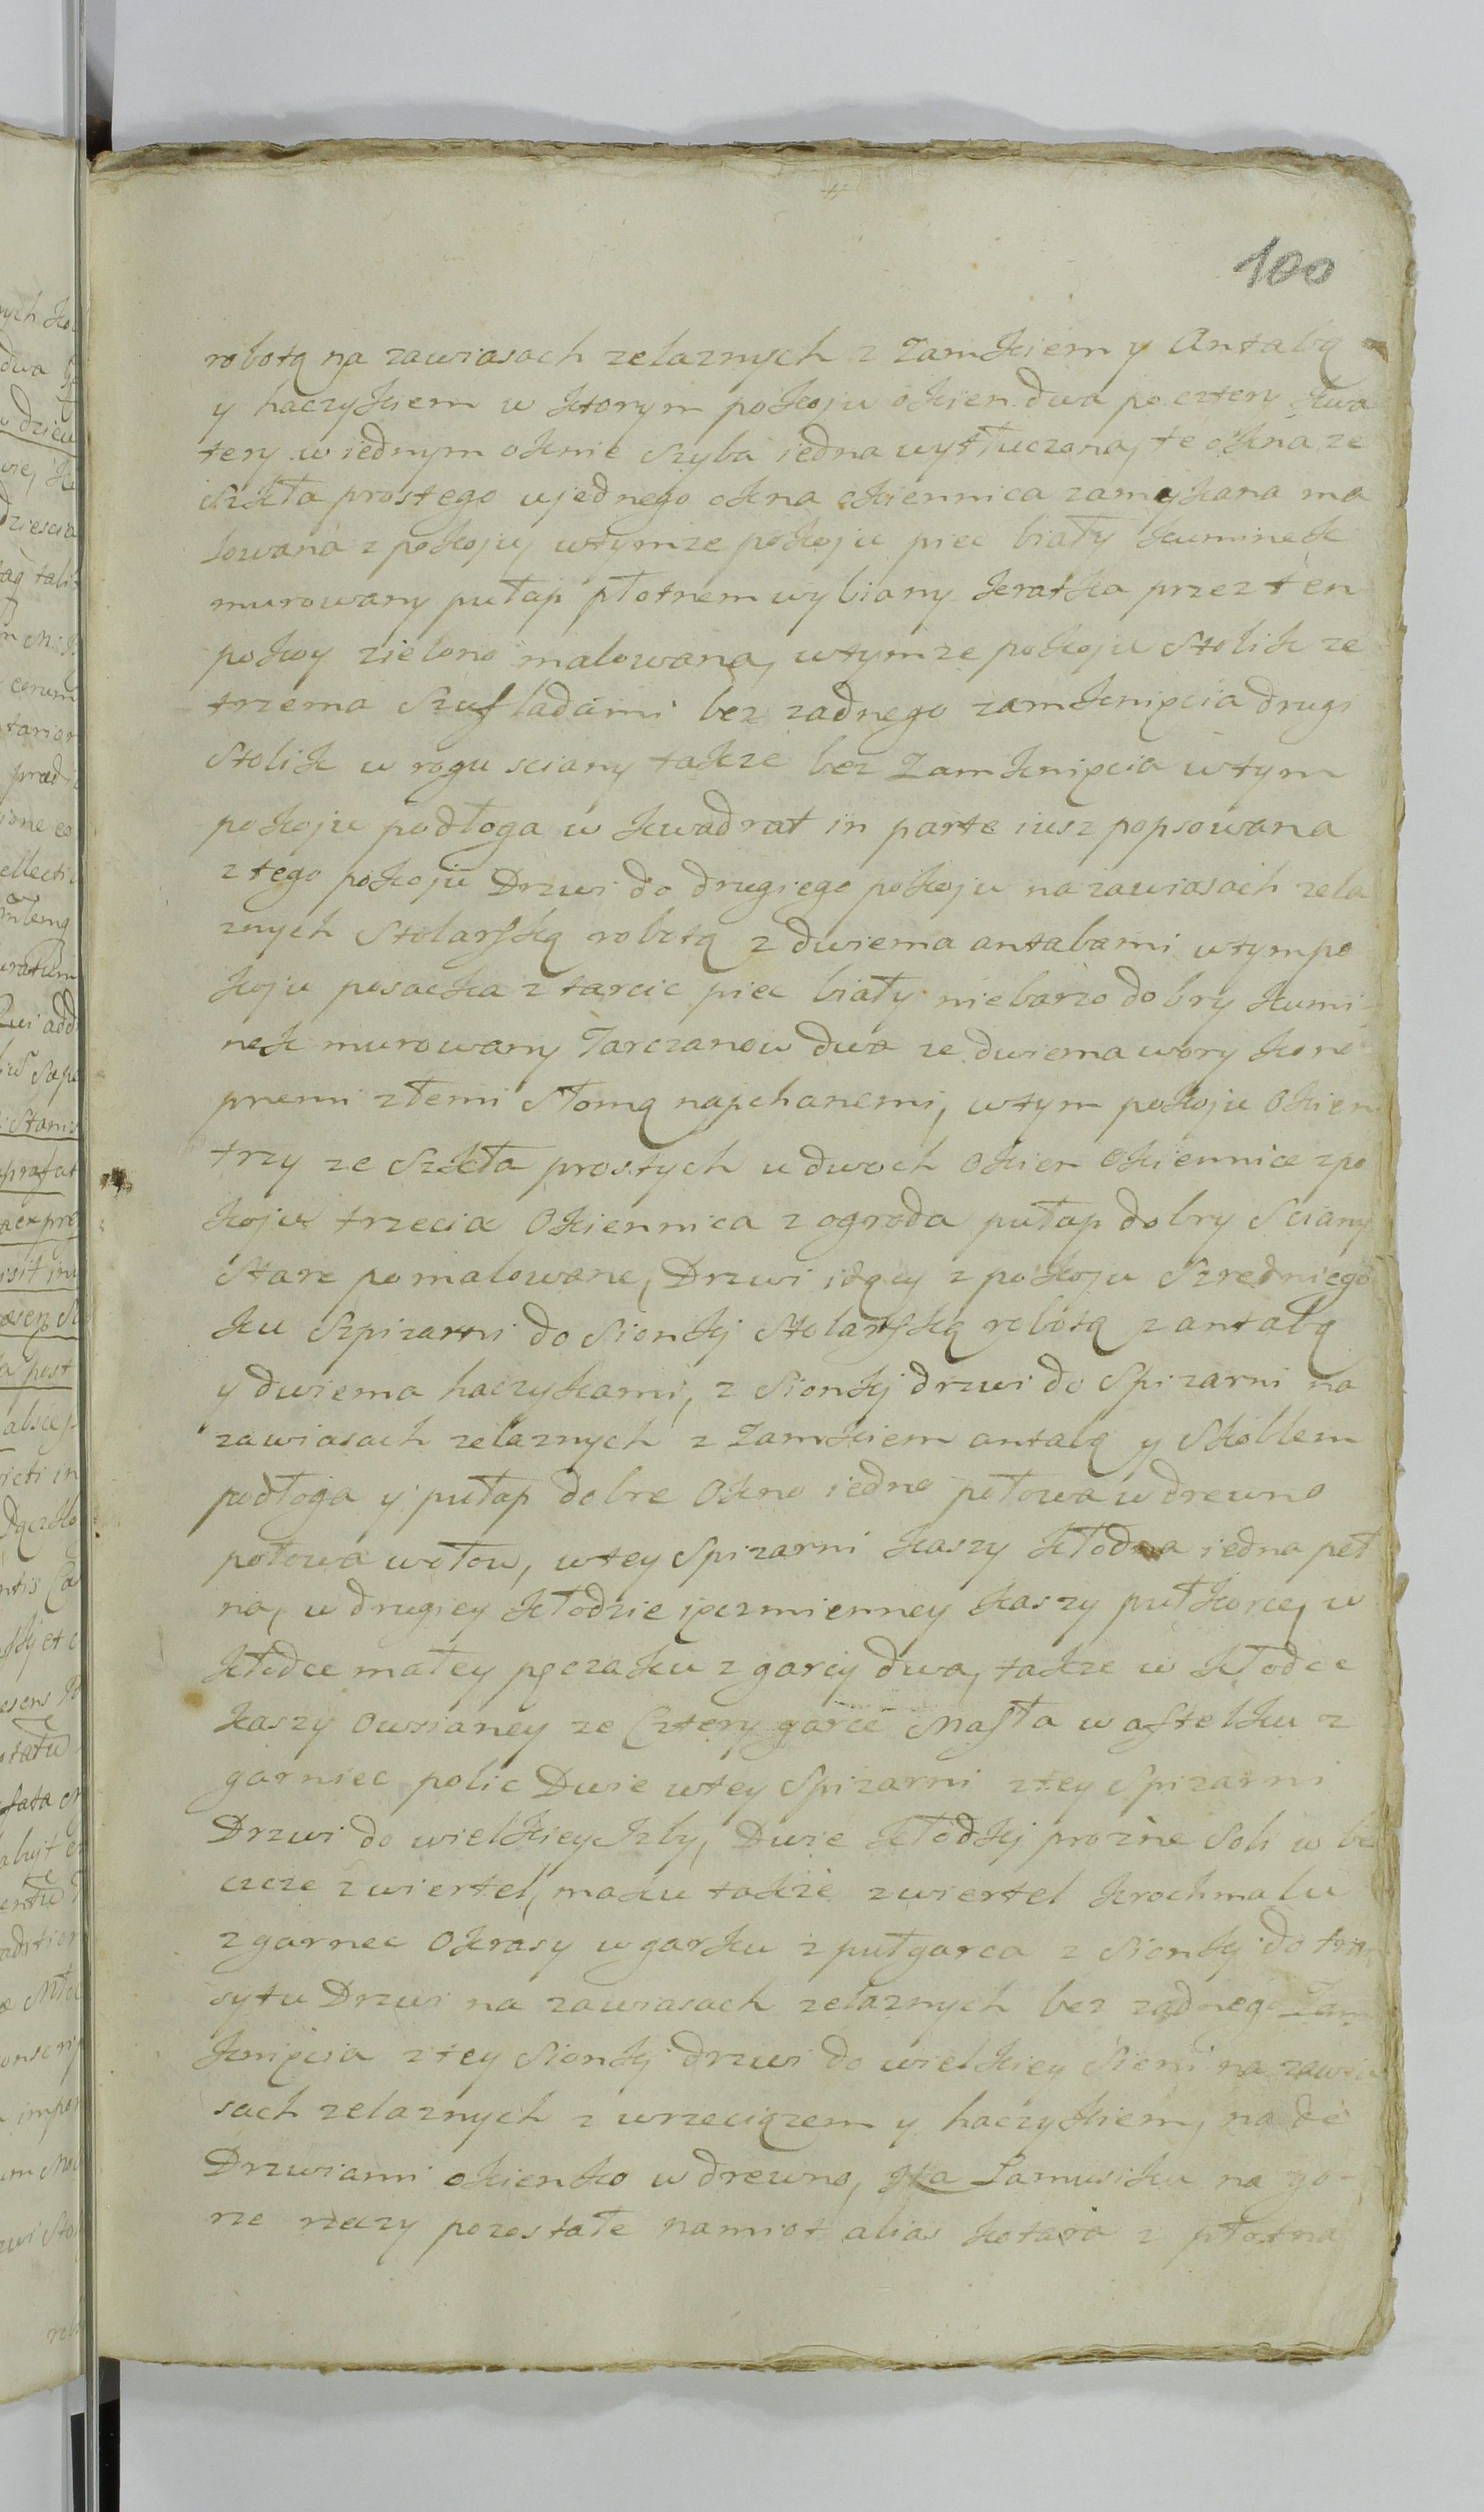 100
robotą na zawiasach zelaznych z Zamkiem y Antabą
y haczykiem w ktorym pokoju okien dwa po cztery kwa
tery w iednym oknie Szyba iedna wytłuczona, te okna ze
Szkła prostego u jednego okna okiennica zamykana ma
lowana z pokoju, wtymze pokoju piec biały kuminek
murowany pułap płotnem wybiany kratka przez ten
pokoy zielono malowana, wtymze pokoju Stolik ze
trzema Szufladami bez zadnego zamknięcia drugi
Stolik w rogu sciany takze bez Zamknięcia wtym
pokoju podłoga w kwadrat in parte iusz popsowana
z tego pokoju Drzwi do drugiego pokoju na zawiasach zela
znych Stolarską robotą z dwiema antabami wtym po
koju posacka z tarcic piec biały niebarzo dobry kumi
nek murowany Tarczanow dwa ze dwiema wory kono
pnemi złemi Słomą napchanemi, wtym pokoju Okien
trzy ze Szkła prostych u dwoch Okien Okiennice z po
koju trzecia Okiennica z ogroda pułap dobry Sciany
Stare pomalowane, Drzwi idący z pokoju Szredniego
ku Szpizarni do Sionki Stolarską robotą z antabą
y dwiema haczykami, z Sionki drzwi do Spizarni na
zawiasach zelaznych z Zamkiem antabą y Skoblem
podłoga y pułap dobre Okno iedno połowa w drewno
połowa w ołow, wtey Spizarni kaszy kłodka iedna peł
na, w drugiey kłodzie ięczmienney kaszy puł korce, w
kłodce małey pęczaku z garcy dwa, takze w kłodce
kaszy Owsianey ze Cztery garce Masła w aſtelku z
garniec polic Dwie wtey Spizarni z tey Spizarni
Drzwi do wielkiey Izby, Dwie kłodki prozne Soli w be
czce zwiertel, maku takze zwiertel krochmalu
z garnec Okrasy w garku z puł garca z Sionki do tran
sytu Drzwi na zawiasach zelaznych bez zadnego Zam
knięcia z tey Sionki drzwi do wielkiey Sieni na zawia
sach zelaznych z wrzeciązem y haczykiem, nade
Drzwiami okienko w drewno, Na Lamusiku na go-
rze rzeczy pozostałe namiot alias kotara z płotna